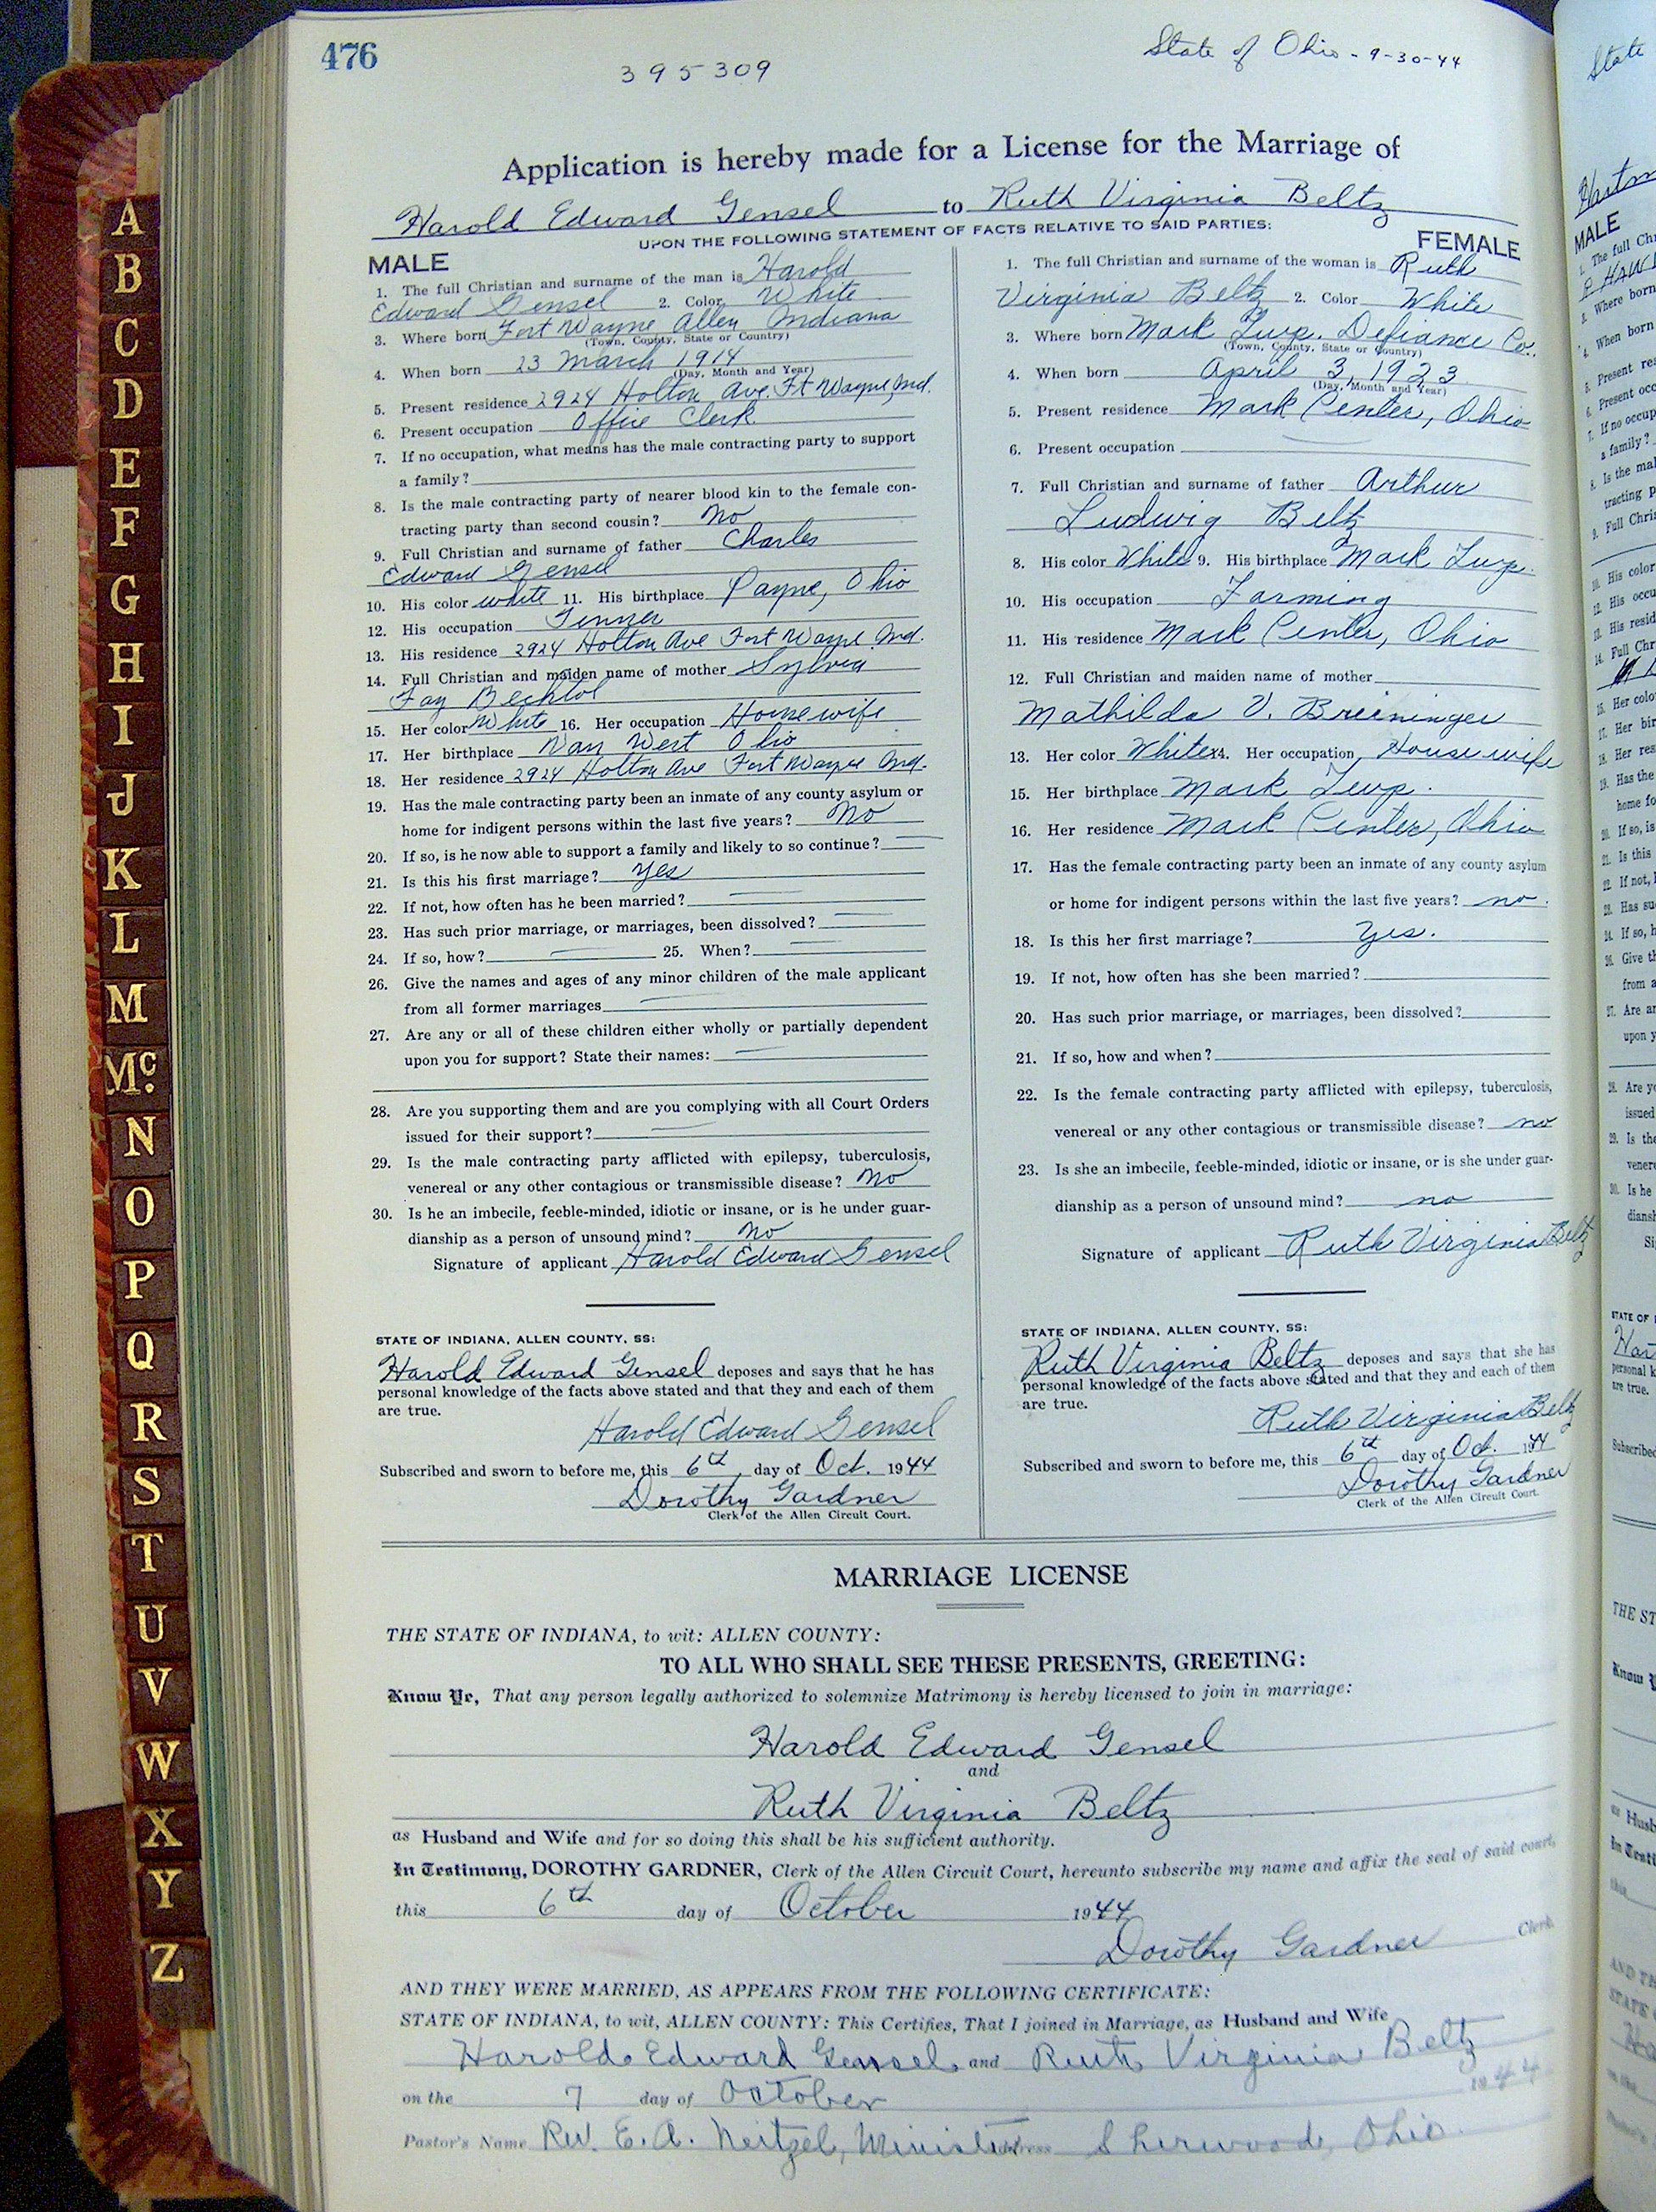 476
395309
State of Ohio - 9-30-44
Application is hereby made for a License for the Marriage of
Harold Edward Gensel to Ruth Virginia Beltz
UPON THE FOLLOWING STATEMENT OF FACTS RELATIVE TO SAID PARTIES:
MALE
1. The full Christian and surname of the man is Harold
Edward Gensel 2. Color White
3. Where born Fort Wayne Allen Indiana
(Town, County, State or Country)
4. When born 23 March 1914
(Day, Month and Year)
5. Present residence 2924 Holton Ave. Ft Wayne, Ind.
6. Present occupation Office Clerk
7. If no occupation, what means has the male contracting party to support
a family?
8. Is the male contracting party of nearer blood kin to the female con-
tracting party than second cousin? No
9. Full Christian and surname of father Charles
Edward Gensel
10. His color white 11. His birthplace Payne, Ohio
12. His occupation
13. His residence 2924 Holton Ave Fort Wayne Ind.
14. Full Christian and maiden name of mother Sylvia
Fay Bechtol
15. Her color White 16. Her occupation Housewife
17. Her birthplace Van Wert Ohio
18. Her residence 2924 Holton Ave Fort Wayne Ind.
19. Has the male contracting party been an inmate of any county asylum or
home for indigent persons within the last five years? No
20. If so, is he now able to support a family and likely to so continue?
21. Is this his first marriage? Yes
22. If not, how often has he been married?
23. Has such prior marriage, or marriages, been dissolved?
24. If so, how? 25. When?
26. Give the names and ages of any minor children of the male applicant
from all former marriages
27. Are any or all of these children either wholly or partially dependent
upon you for support? State their names:
28. Are you supporting them and are you complying with all Court Orders
issued for their support?
29. Is the male contracting party afflicted with epilepsy, tuberculosis,
venereal or any other contagious or transmissible disease? No
30. Is he an imbecile, feeble-minded, idiotic or insane, or is he under guar-
dianship as a person of unsound mind? No
Signature of applicant Harold Edward Gensel
STATE OF INDIANA, ALLEN COUNTY, SS:
Harold Edward Gensel deposes and says that he has
personal knowledge of the facts above stated and that they and each of them
are true.
Harold Edward Gensel
Subscribed and sworn to before me, this 6th day of Oct. 1944
Dorothy Gardner
Clerk of the Allen Circuit Court.
FEMALE
1. The full Christian and surname of the woman is Ruth
Virginia Beltz 2. Color White
3. Where born Mark Twp. Defiance Co.
(Town, County, State or Country)
4. When born April 3, 1923
(Day, Month and Year)
5. Present residence Mark Center, Ohio
6. Present occupation
7. Full Christian and surname of father Arthur
Ludwig Beltz
8. His color White 9. His birthplace Mark Twp.
10. His occupation Farming
11. His residence Mark Center, Ohio
12. Full Christian and maiden name of mother
Mathilda V. Breininger
13. Her color White 14. Her occupation Housewife
15. Her birthplace Mark Twp.
16. Her residence Mark Center, Ohio
17. Has the female contracting party been an inmate of any county asylum
or home for indigent persons within the last five years? no.
18. Is this her first marriage? Yes.
19. If not, how often has she been married?
20. Has such prior marriage, or marriages, been dissolved?
21. If so, how and when?
22. Is the female contracting party afflicted with epilepsy, tuberculosis,
venereal or any other contagious or transmissible disease? no
23. Is she an imbecile, feeble-minded, idiotic or insane, or is she under guar-
dianship as a person of unsound mind? no
Signature of applicant Ruth Virginia Beltz
STATE OF INDIANA, ALLEN COUNTY, SS:
Ruth Virginia Beltz deposes and says that she has
personal knowledge of the facts above stated and that they and each of them
are true.
Ruth Virginia Beltz
Subscribed and sworn to before me, this 6th day of Oct. 1944
Dorothy Gardner
Clerk of the Allen Circuit Court.
MARRIAGE LICENSE
THE STATE OF INDIANA, to wit: ALLEN COUNTY:
TO ALL WHO SHALL SEE THESE PRESENTS, GREETING:
Know Ye, That any person legally authorized to solemnize Matrimony is hereby licensed to join in marriage:
Harold Edward Gensel
and
Ruth Virginia Beltz
as Husband and Wife and for so doing this shall be his sufficient authority.
In Testimony, DOROTHY GARDNER, Clerk of the Allen Circuit Court, hereunto subscribe my name and affix the seal of said court,
this 6th day of October 1944
Dorothy Gardner Clerk
AND THEY WERE MARRIED, AS APPEARS FROM THE FOLLOWING CERTIFICATE:
STATE OF INDIANA, to wit, ALLEN COUNTY: This Certifies, That I joined in Marriage, as Husband and Wife
Harold Edward Gensel and Ruth Virginia Beltz
on the 7 day of October 1944
Pastor's Name Rev. E. A. Neitzel, Minister Address Sherwood, Ohio.
A
B
C
D
E
F
G
H
I
J
K
L
M
Mc.
N
O
P
Q
R
S
T
U
V
W
X
Y
Z